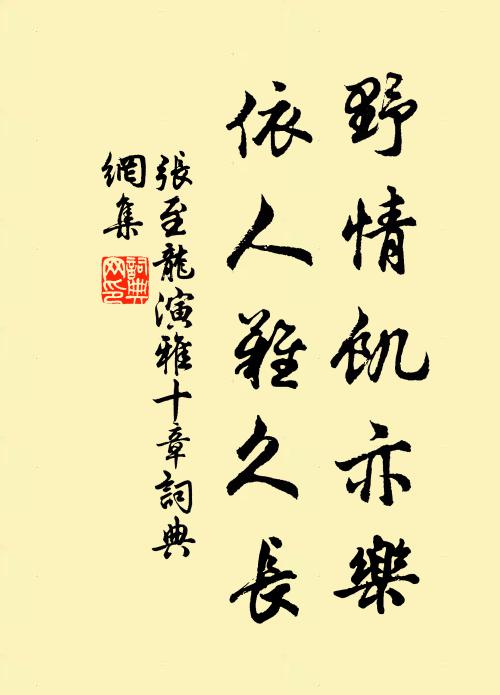 野情飢亦樂
依人難久長
張至龍演雅十章詞典
網集
詞典網印